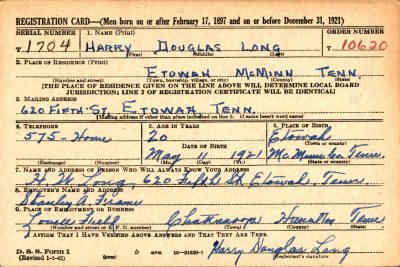 REGISTRATION CARD—(Men born on or after February 17, 1897 and on or before December 31, 1921)
SERIAL NUMBER 1. NAME (Print) ORDER NUMBER
T 1704 HARRY DOUGLAS LONG T 10620
(First) (Middle) (Last)
2. PLACE OF RESIDENCE (Print)
ETOWAH MCMINN TENN.
(Number and street) (Town, township, village, or city) (County) (State)
[THE PLACE OF RESIDENCE GIVEN ON THE LINE ABOVE WILL DETERMINE LOCAL BOARD
JURISDICTION; LINE 2 OF REGISTRATION CERTIFICATE WILL BE IDENTICAL]
3. MAILING ADDRESS
620 FIFTH ST. ETOWAH, TENN.
[Mailing address if other than place indicated on line 2. If same insert word same]
4. TELEPHONE 5. AGE IN YEARS 6. PLACE OF BIRTH
575-Home 20 Etowah
DATE OF BIRTH (Town or county)
May 11 1921 McMinn Co. Tenn.
(Exchange) (Number) (Mo.) (Day) (Yr.) (State or country)
7. NAME AND ADDRESS OF PERSON WHO WILL ALWAYS KNOW YOUR ADDRESS
H. W. Long, 620 Fifth St. Etowah, Tenn.
8. EMPLOYER'S NAME AND ADDRESS
Stanley A.
9. PLACE OF EMPLOYMENT OR BUSINESS
Lovell Field Hamilton Tenn
(Number and street or R. F. D. number) (Town) (County) (State)
I AFFIRM THAT I HAVE VERIFIED ABOVE ANSWERS AND THAT THEY ARE TRUE.
D. S. S. Form 1
(Revised 1-1-42) (over) Harry Douglas Long
(Registrant's signature)